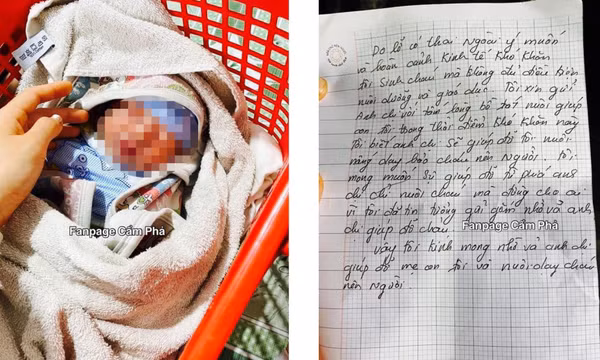 Fanpage Cẩm Phả
Do lỡ có thai Ngoài ý muốn
và hoàn cảnh Kinh tế Khó Khăn
tôi Sinh cháu mà không đủ điều kiện
nuôi dưỡng và giáo dục. Tôi xin gửi
Anh chị với tấm lòng bồ tát nuôi giúp
con tôi trong thời điểm Khó Khăn này
Tôi biết anh chị Sẽ giúp đỡ tôi nuôi
nâng dạy bảo cháu nên Người. Tôi
mong muốn Sự giúp đỡ từ phía anh
chị chỉ nuôi cháu mà đừng cho ai
vì tôi đã tin tưởng gửi gắm nhờ vả anh
chị giúp đỡ cháu
Fanpage Cẩm Phả
Vậy tôi Kính mong nhờ vả anh chị
giúp đỡ mẹ con tôi và nuôi dạy cháu
nên Người.